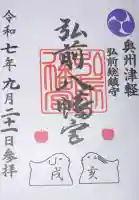 奥州津軽
弘前総鎮守
弘前八幡宮
令和七年九月二十一日参拝
亥
戌